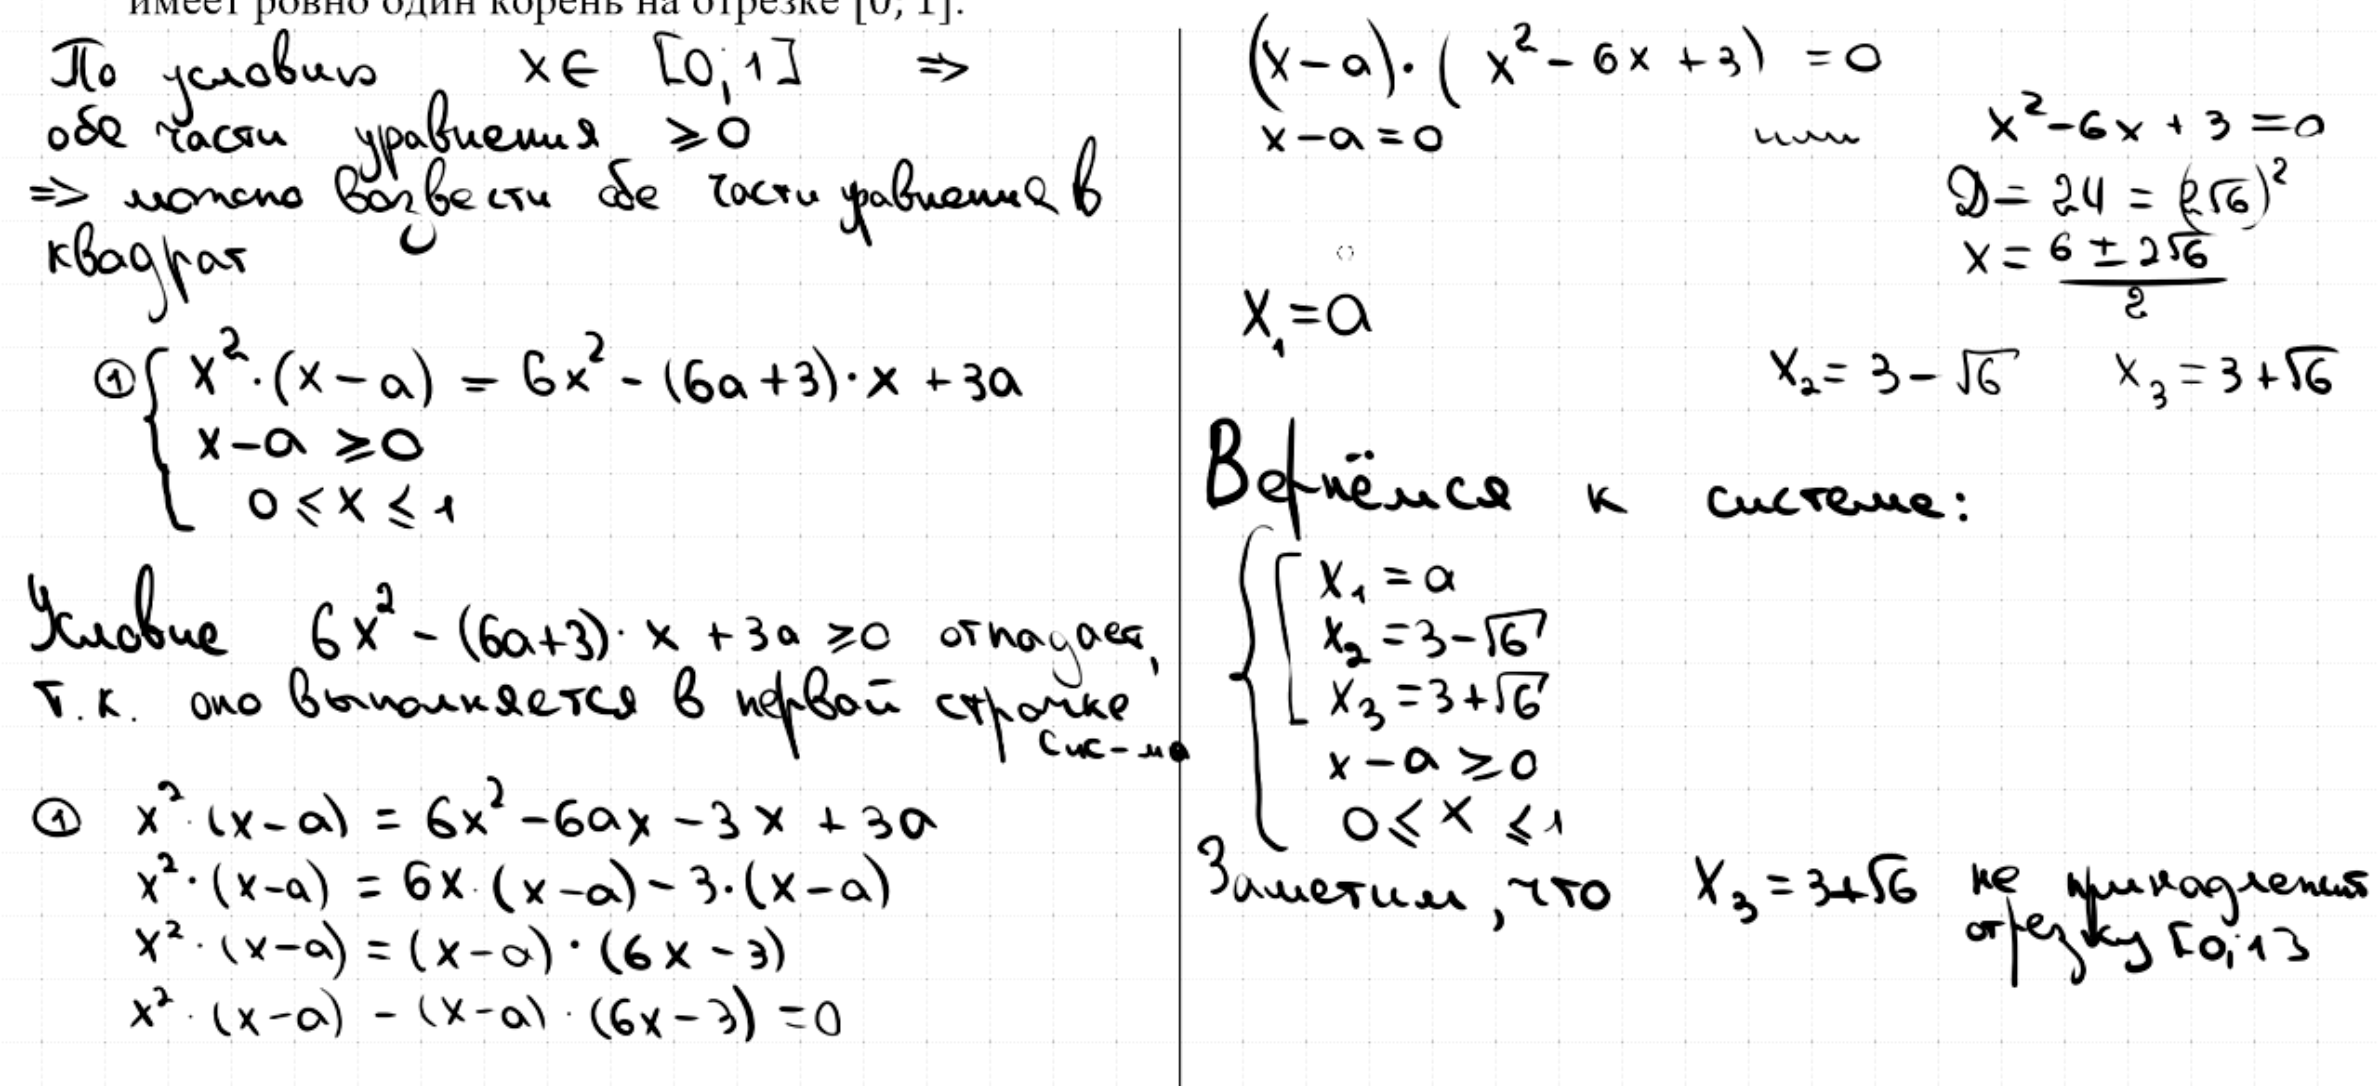 имеет ровно один корень на отрезке [0; 1].
По условию x ∈ [0; 1] ⇒
обе части уравнения ⩾ 0
⇒ можно возвести обе части уравнения в
квадрат
① { x² · (x − a) = 6x² − (6a + 3) · x + 3a
x − a ⩾ 0
0 ⩽ x ⩽ 1
Условие 6x² − (6a+3) · x + 3a ⩾ 0 отпадает,
т.к. оно выполняется в первой строчке
сис-мы
① x² · (x − a) = 6x² − 6ax − 3x + 3a
x² · (x−a) = 6x · (x−a) − 3 · (x−a)
x² · (x−a) = (x−a) · (6x − 3)
x² · (x−a) − (x−a) · (6x − 3) = 0
(x−a) · (x² − 6x + 3) = 0
x − a = 0 или x² − 6x + 3 = 0
D = 24 = (2√6)²
x = (6 ± 2√6)/2
x₁ = a
x₂ = 3 − √6 x₃ = 3 + √6
Вернёмся к системе:
{ [ x₁ = a
x₂ = 3 − √6
x₃ = 3 + √6
x − a ⩾ 0
0 ⩽ x ⩽ 1
Заметим, что x₃ = 3+√6 не принадлежит
отрезку [0; 1]